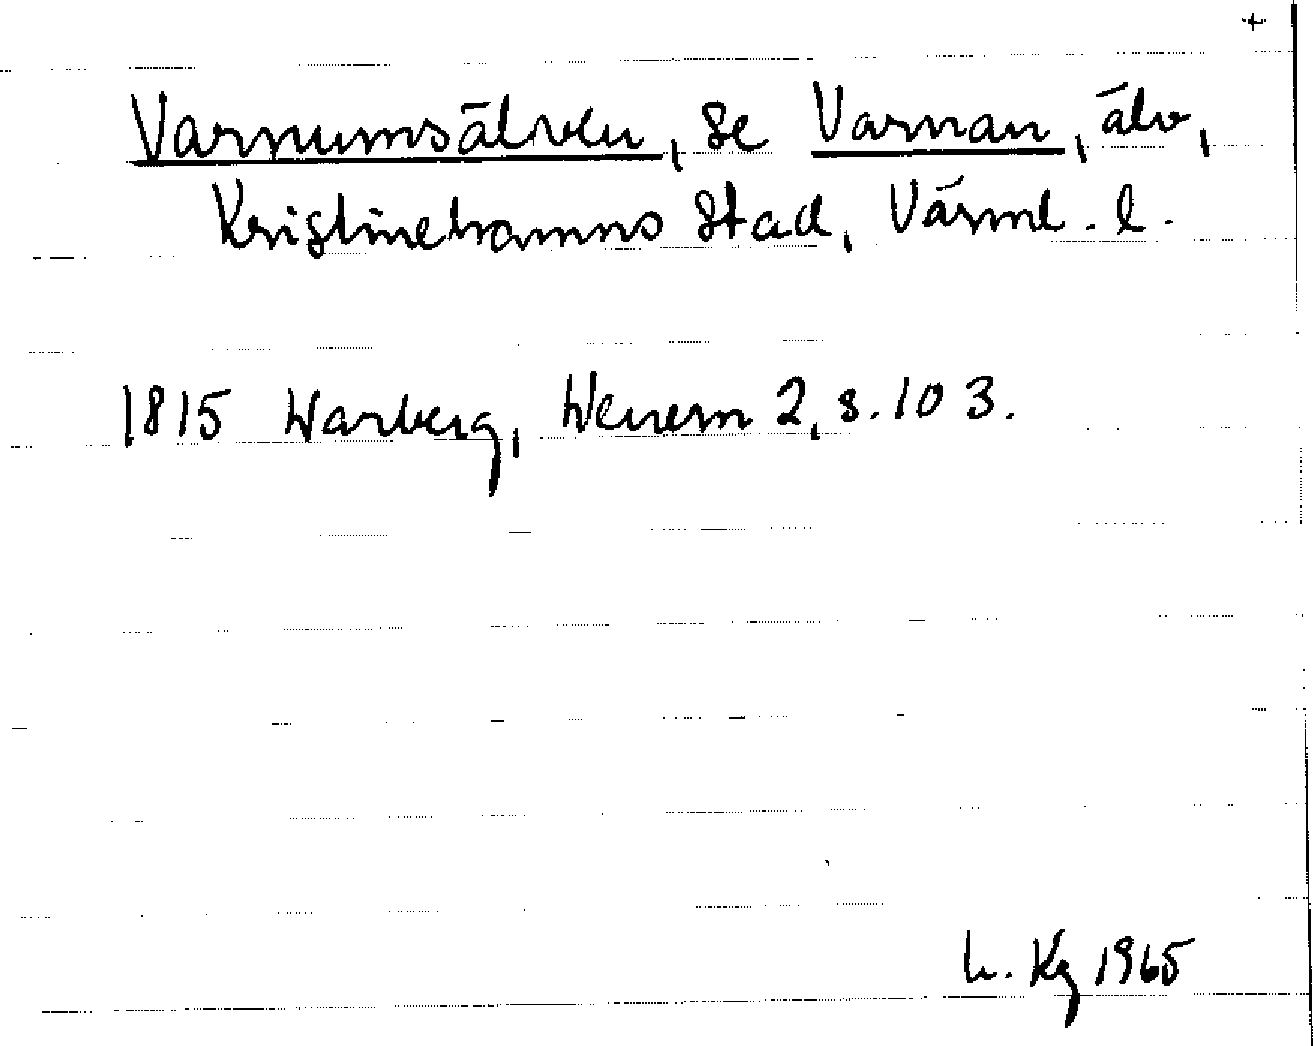 +
Varnumsälven, se Varnan, älv,
Kristinehamns stad, Värml. l.
1815 Warberg, Wenern 2, s. 103.
L. Kg 1965